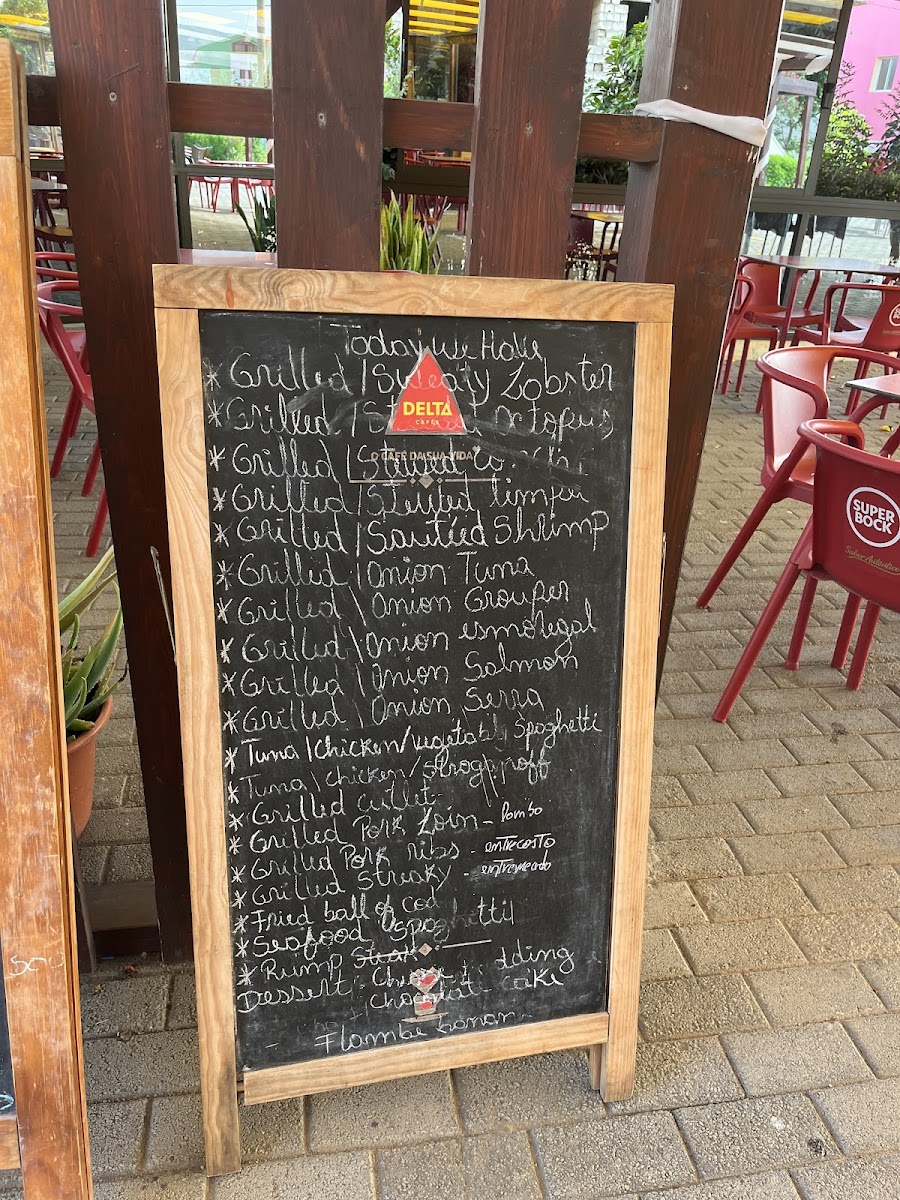 Today we Have
* Grilled / Sweaty Lobster
DELTA
CAFÉS
* Grilled / Octopus
O CAFÉ DA SUA VIDA
* Grilled / Stewed
* Grilled / Stewed limpu
* Grilled / Sautéed Shrimp
* Grilled / Onion Tuna
* Grilled \ Onion Grouper
* Grilled \ Onion esmoregal
* Grilled \ Onion Salmon
* Grilled \ Onion Serra
* Tuna / chicken / vegetably Spaghetti
* Tuna \ chicken / stroganoff
* Grilled cutlet
* Grilled Pork Loin - Lombo
* Grilled Pork ribs - entrecosto
* Grilled Streaky - entremeado
* Fried ball of cod
* Seafood Spaghetti
* Rump Steak
Dessert - pudding
/ chocolate cake
Flambé banan
SUPER
BOCK
Sabor Autêntico